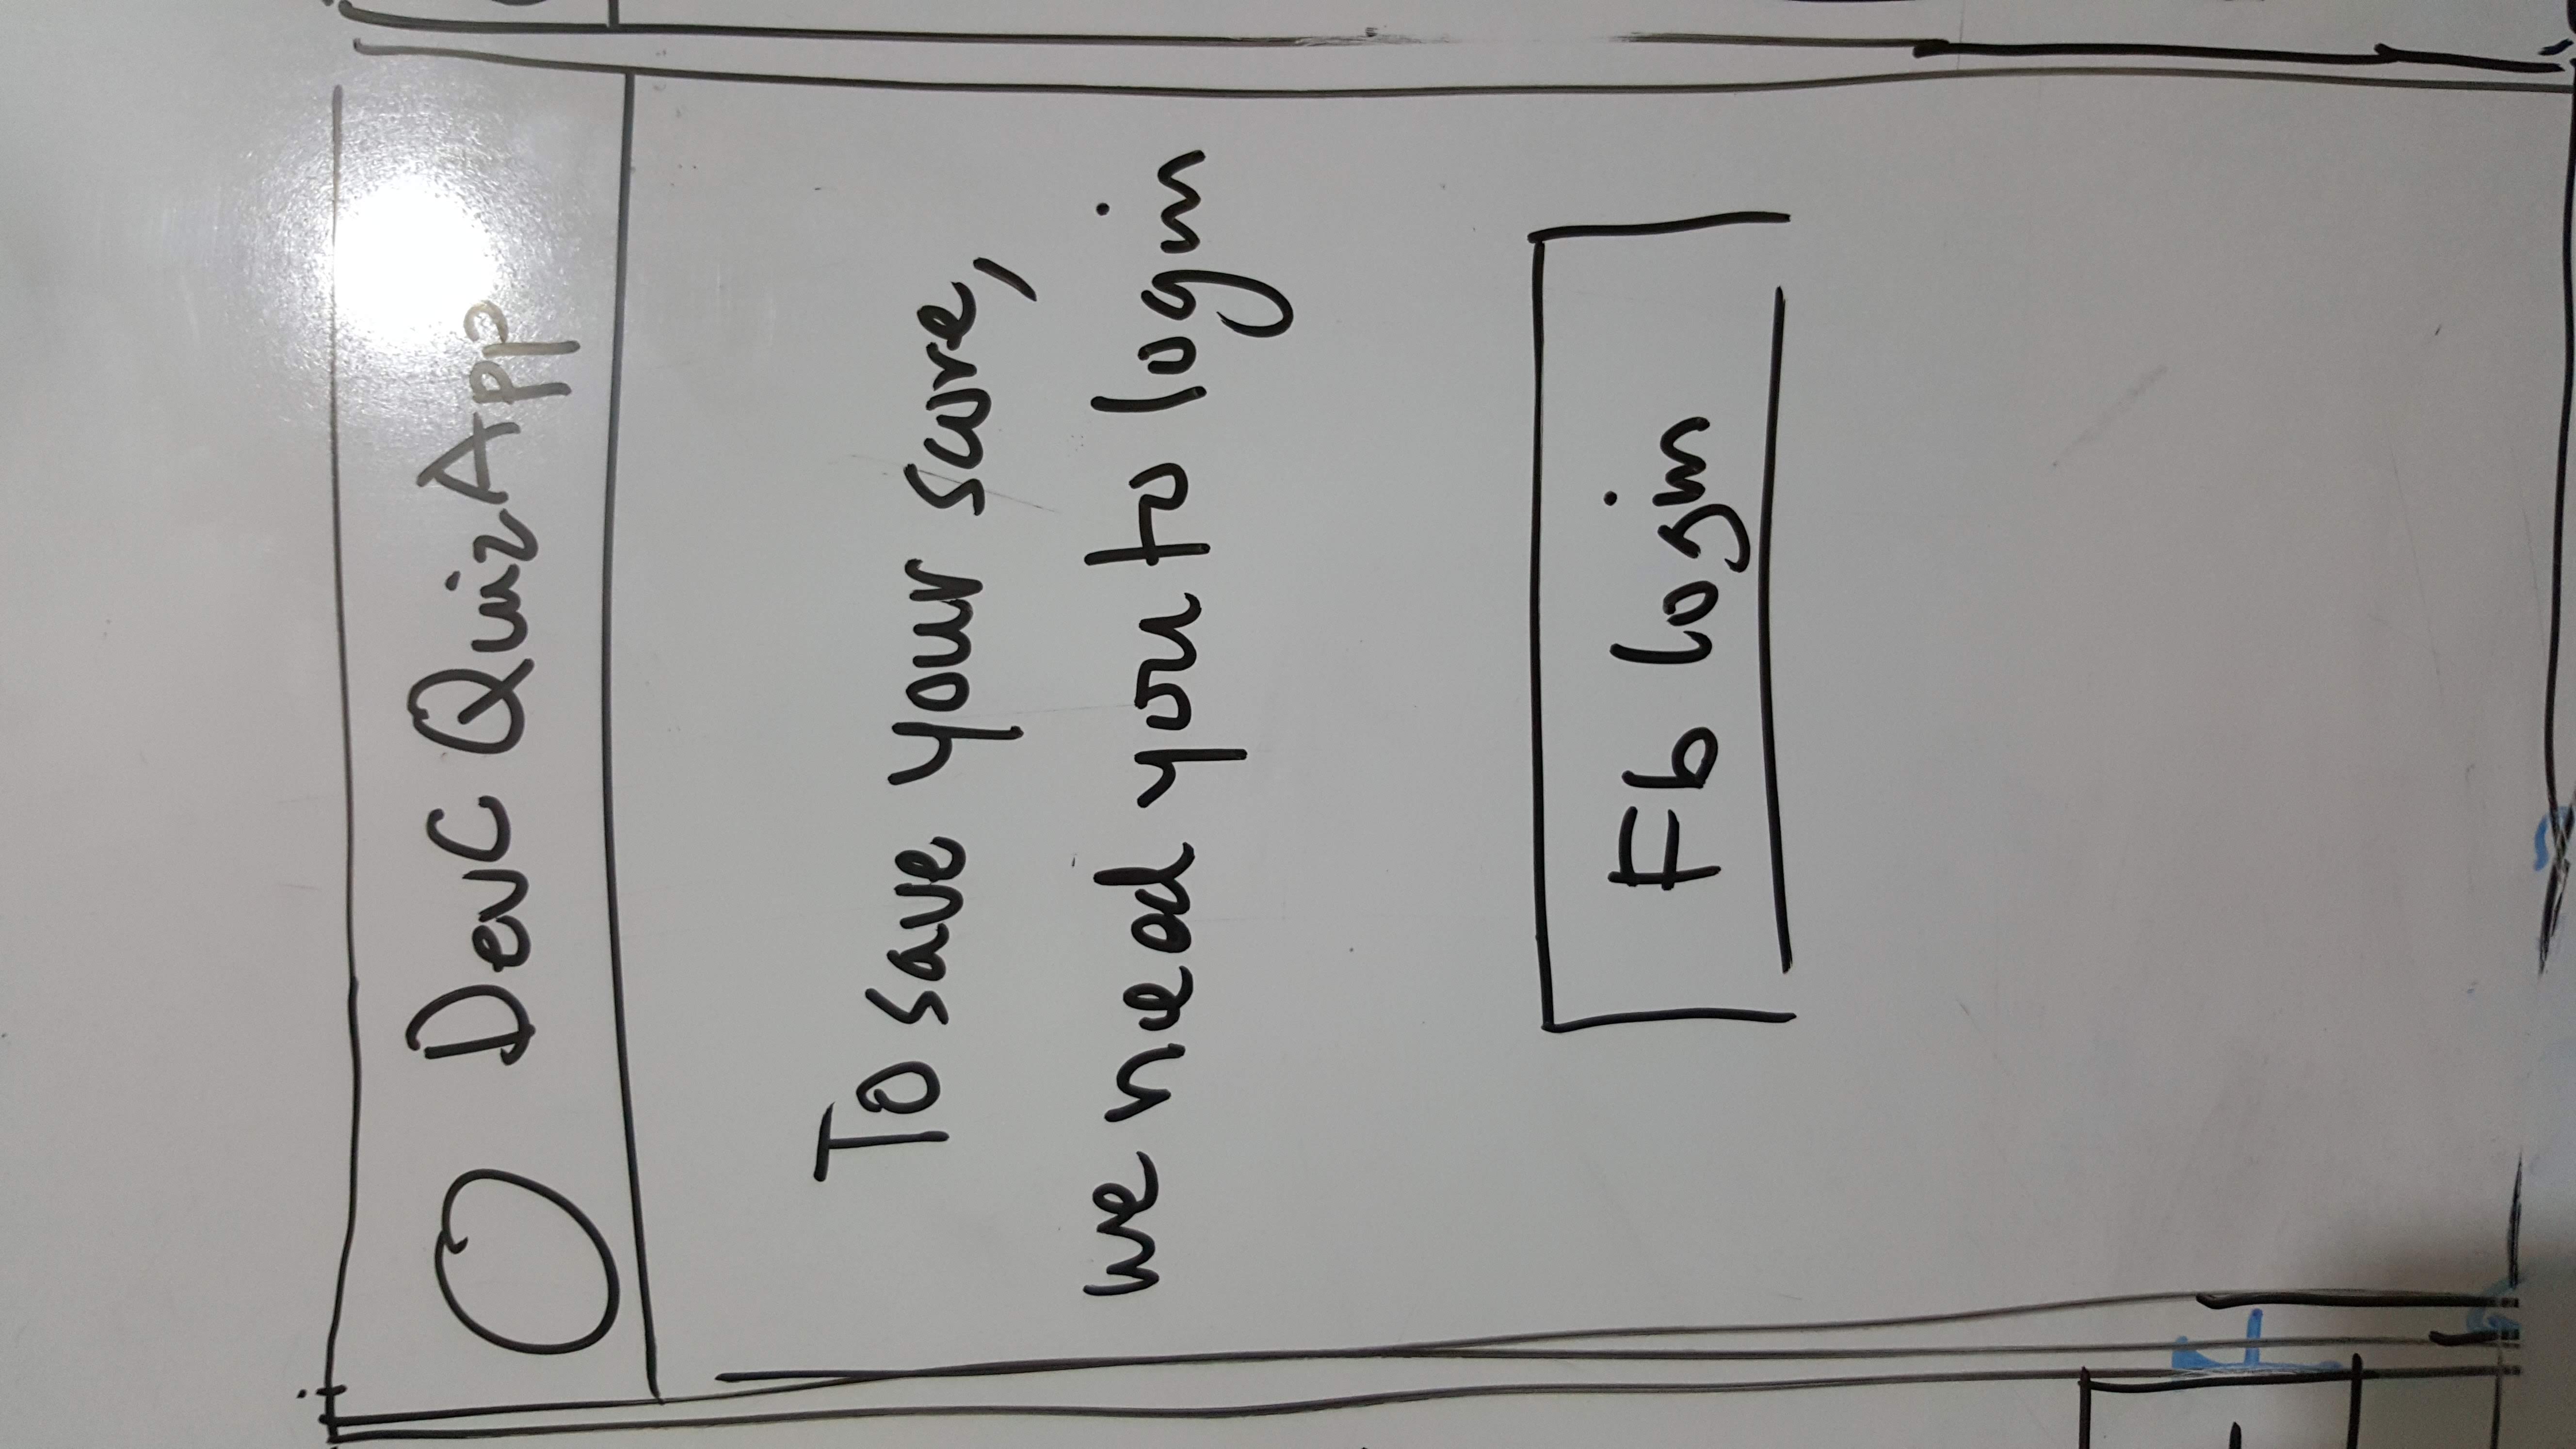 DevC Quiz App
To save your score,
we need you to login
Fb login